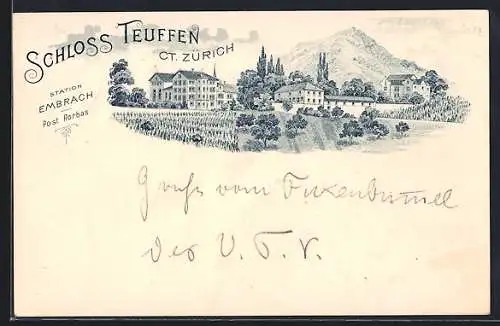 SCHLOSS TEUFFEN
CT. ZÜRICH
STATION
EMBRACH
Post Rorbas
Gruss vom
des V.T.V.